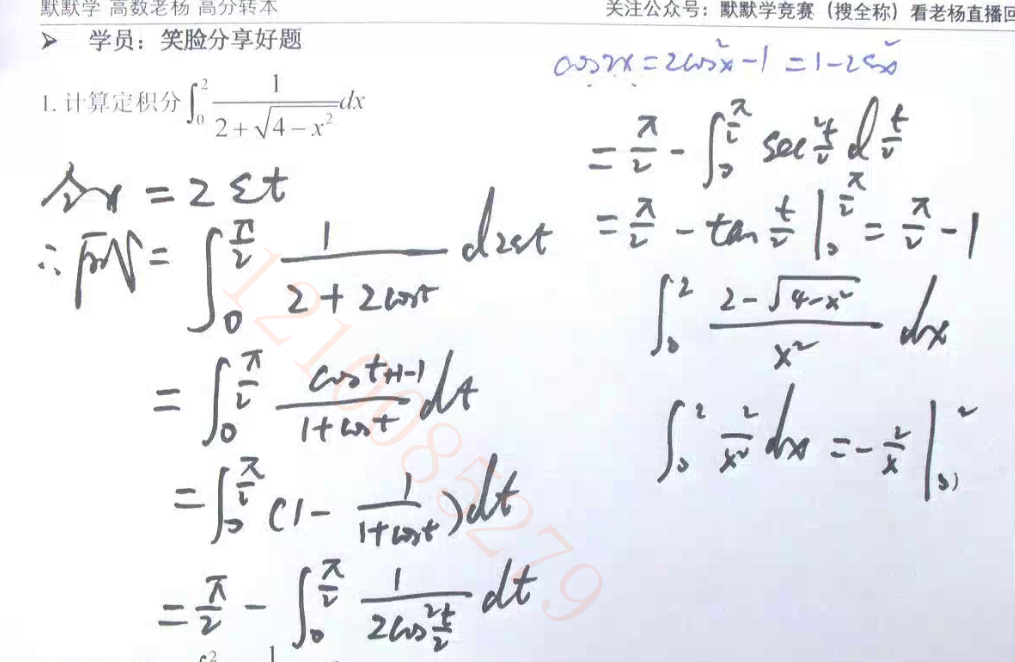 默默学 高数老杨 高分转本
关注公众号：默默学竞赛（搜全称）看老杨直播回
➤ 学员：笑脸分享好题
1. 计算定积分∫₀² 1/(2+√(4−x²)) dx
令x = 2 sin t
∴ 原式 = ∫₀^(π/2) 1/(2+2cost) d2sint
= ∫₀^(π/2) (cost+1−1)/(1+cost) dt
= ∫₀^(π/2) (1− 1/(1+cost)) dt
= π/2 − ∫₀^(π/2) 1/(2cos²(t/2)) dt
cos2x = 2cos²x−1 = 1−2sin²x
= π/2 − ∫₀^(π/2) sec²(t/2) d(t/2)
= π/2 − tan(t/2) |₀^(π/2) = π/2 −1
∫₀² (2−√(4−x²))/x² dx
∫₀² 2/x² dx = −2/x |₀²
1210085279